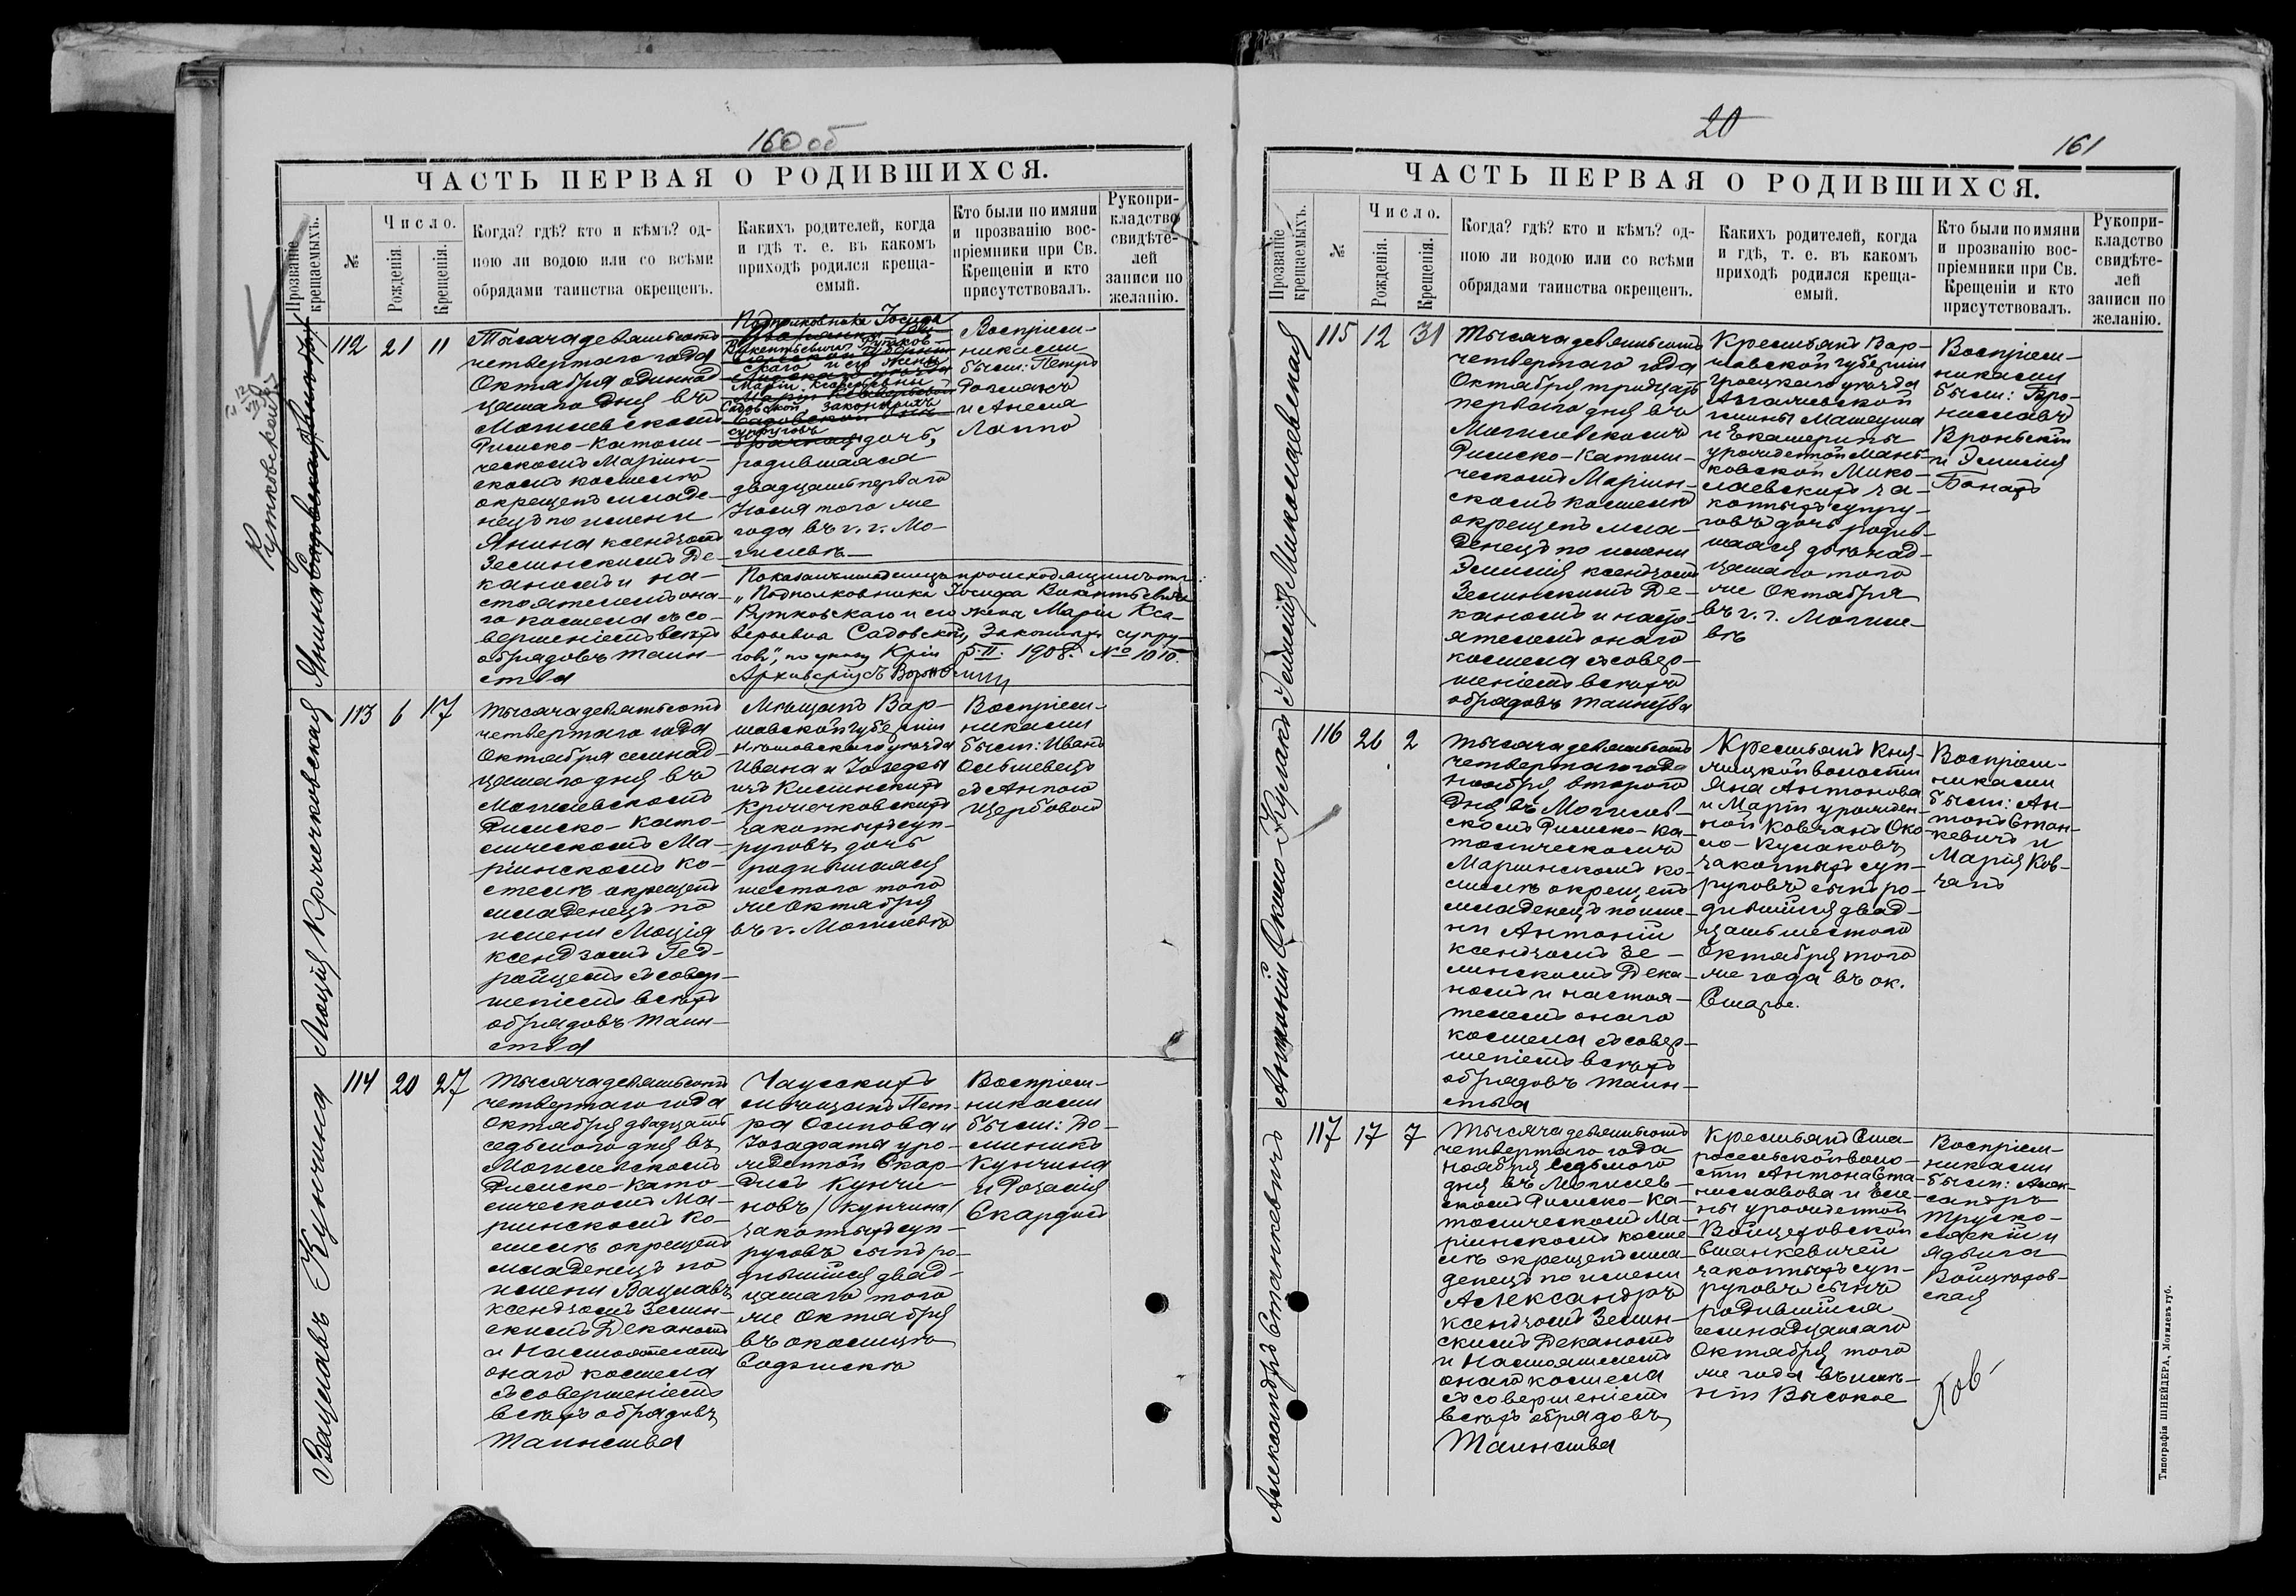 160 об
ЧАСТЬ ПЕРВАЯ О РОДИВШИХСЯ.
Прозваніе крещаемыхъ.
№
Число.
Рожденія.
Крещенія.
Когда? гдѣ? кто и кѣмъ? од-
ною ли водою или со всѣми
обрядами таинства окрещенъ.
Какихъ родителей, когда
и гдѣ т. е. въ какомъ
приходѣ родился креща-
емый.
Кто были по имяни
и прозванію вос-
пріемники при Св.
Крещеніи и кто
присутствовалъ.
Рукопри-
кладство
свидѣте-
лей
записи по
желанію.
Рутковская
Янина
112
21
11
Тысяча девятьсотъ
четвертаго года
Октября одиннад-
цатаго дня въ
Могилевскомъ
Римско-Католи-
ческомъ Маріин-
скомъ костелѣ
окрещенъ младе-
нецъ по имени
Янина ксендзомъ
Зелинскимъ Де-
каномъ и на-
стоятелемъ она-
го костела съ со-
вершеніемъ всѣхъ
обрядовъ таин-
ства
Подполковника Іосифа
Викентьевича Рутков-
скаго и его жены
Маріи Ксаверьевны
Садовской законныхъ
супруговъ
дочь,
родившаяся
двадцать перваго
Іюля того же
года въ г. г. Мо-
гилевѣ
"Подполковника Іосифа Викентьевича
Рутковскаго и его жены Маріи Кса-
верьевны Садовской, Законныхъ супру-
говъ", по указу
1908. № 1010.
Люція Крочечковская
113
6
17
Тысяча девятьсотъ
четвертаго года
Октября семнад-
цатаго дня въ
Могилевскомъ
Римско-Като-
лическомъ Ма-
ріинскомъ ко-
стелѣ окрещенъ
младенецъ по
имени Люція
ксендзомъ Гед-
ройцемъ съ совер-
шеніемъ всѣхъ
обрядовъ таин-
ства
Мѣщанъ Вар-
шавской губерніи
уѣзда
Ивана и Юзефы
изъ Кисинскихъ
Крочечковскихъ
законныхъ суп-
руговъ дочь
родившаяся
шестого того
же Октября
въ г. Могилевѣ
Воспріем-
никами
были: Иванъ
Ольшевецъ
съ Анною
Щербовой
Вацлавъ Кунчина
114
20
27
Тысяча девятьсотъ
четвертаго года
Октября двадцать
седьмого дня въ
Могилевскомъ
Римско-Като-
лическомъ Ма-
ріинскомъ ко-
стелѣ окрещенъ
младенецъ по
имени Вацлавъ
ксендзомъ Зелин-
скимъ Деканомъ
и Настоятелемъ
онаго костела
съ совершеніемъ
всѣхъ обрядовъ
Таинства
Чаусскихъ
мѣщанъ Пет-
ра Осипова и
Іозафата уро-
жденной Скар-
дисъ Кунчи-
новъ /Кунчина/
законныхъ суп-
руговъ сынъ ро-
дившійся двад-
цатаго того
же Октября
въ околицѣ
Воспріем-
никами
были: До-
миникъ
Кунчина
и Розалія
Скардисъ
Воспріем-
никами
были: Петръ
и Анеля
Лаппо
20
161
ЧАСТЬ ПЕРВАЯ О РОДИВШИХСЯ.
Прозваніе крещаемыхъ.
№
Число.
Рожденія.
Крещенія.
Когда? гдѣ? кто и кѣмъ? од-
ною ли водою или со всѣми
обрядами таинства окрещенъ.
Какихъ родителей, когда
и гдѣ, т. е. въ какомъ
приходѣ родился креща-
емый.
Кто были по имяни
и прозванію вос-
пріемники при Св.
Крещеніи и кто
присутствовалъ.
Рукопри-
кладство
свидѣте-
лей
записи по
желанію.
Эмилія Миколаевская
115
12
31
Тысяча девятьсотъ
четвертаго года
Октября тридцать
перваго дня въ
Могилевскомъ
Римско-Католи-
ческомъ Маріин-
скомъ костелѣ
окрещенъ мла-
денецъ по имени
Эмилія ксендзомъ
Зелинскимъ Де-
каномъ и насто-
ятелемъ онаго
костела съ совер-
шеніемъ всѣхъ
обрядовъ таинства
Крестьянъ Вар-
шавской губерніи
Гроецкаго уѣзда
гмины Матеуша
и Екатерины
урожденной Мань-
ковской Мико-
лаевскихъ за-
конныхъ супру-
говъ дочь родив-
шаяся двѣнад-
цатаго того
же Октября
въ г. г. Могиле-
вѣ
Воспріем-
никами
были: Бро-
ниславъ
Вроньскій
и Эмилія
Бонахъ
Антоній Окило Кулакъ
116
26
2
Тысяча девятьсотъ
четвертаго года
ноября второго
дня въ Могилев-
скомъ Римско-Ка-
толическомъ
Маріинскомъ ко-
стелѣ окрещенъ
младенецъ по име-
ни Антоній
ксендзомъ Зе-
линскимъ Дека-
номъ и настоя-
телемъ онаго
костела съ совер-
шеніемъ всѣхъ
обрядовъ таин-
ства
Крестьянъ Кня-
жицкой волости
Яна Антонова
и Маріи урожден-
ной Ковчанъ Око-
ло-Кулаковъ
законныхъ суп-
руговъ сынъ ро-
дившійся двад-
цать шестого
Октября того
же года въ ок.
Старое.
Воспріем-
никами
были: Ан-
тонъ Стан-
кевичъ и
Марія Ков-
чанъ
Александръ Станкевичъ
117
17
7
Тысяча девятьсотъ
четвертаго года
ноября седьмого
дня въ Могилев-
скомъ Римско-Ка-
толическомъ Ма-
ріинскомъ косте-
лѣ окрещенъ мла-
денецъ по имени
Александръ
ксендзомъ Зелин-
скимъ Деканомъ
и Настоятелемъ
онаго костела
съ совершеніемъ
всѣхъ обрядовъ
Таинства
Крестьянъ Ста-
росельской воло-
сти Антона Ста-
ниславова и Еле-
ны урожденной
Войцеховской
Станкевичей
законныхъ суп-
руговъ сынъ
родившійся
семнадцатаго
Октября того
же года въ имѣ-
ніи Высокое
Воспріем-
никами
были: Алек-
сандръ
Труско-
ляскій и
Ядвига
Войцехов-
ская
Типографія ШНЕЙДЕРА, Могилевъ губ.